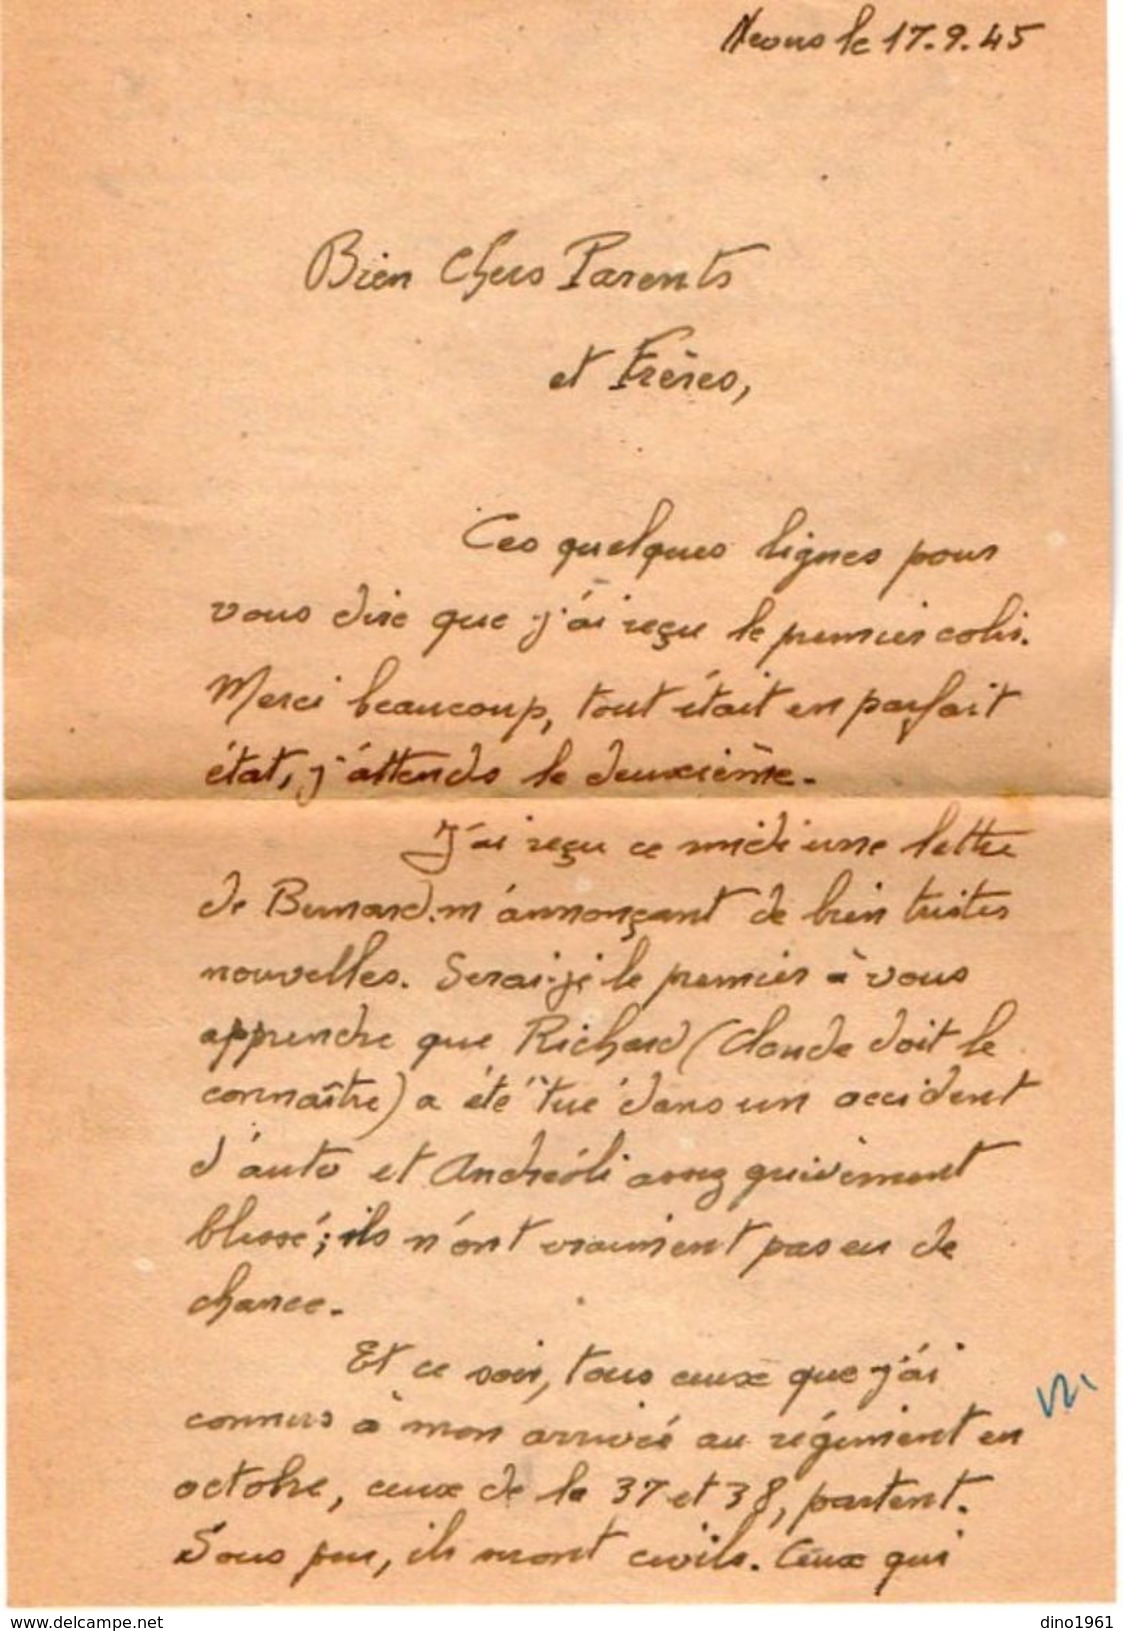 le 17.9.45
Bien Chers Parents
et Frères,
Ces quelques lignes pour
vous dire que j'ai reçu le premier colis.
Merci beaucoup, tout était en parfait
état, j'attends le deuxième.
J'ai reçu ce midi une lettre
de Bernard m'annonçant de bien tristes
nouvelles. Serai-je le premier à vous
apprendre que Richard (Claude doit le
connaître) a été "tué" dans un accident
d'auto et Andréoli assez grièvement
blessé ; ils n'ont vraiment pas eu de
chance.
Et ce soir, tous ceux que j'ai
connus à mon arrivée au régiment en
octobre, ceux de la 37 et 38, partent.
Sous peu, ils seront civils. Ceux qui
https://www.delcampe.net
dino1961